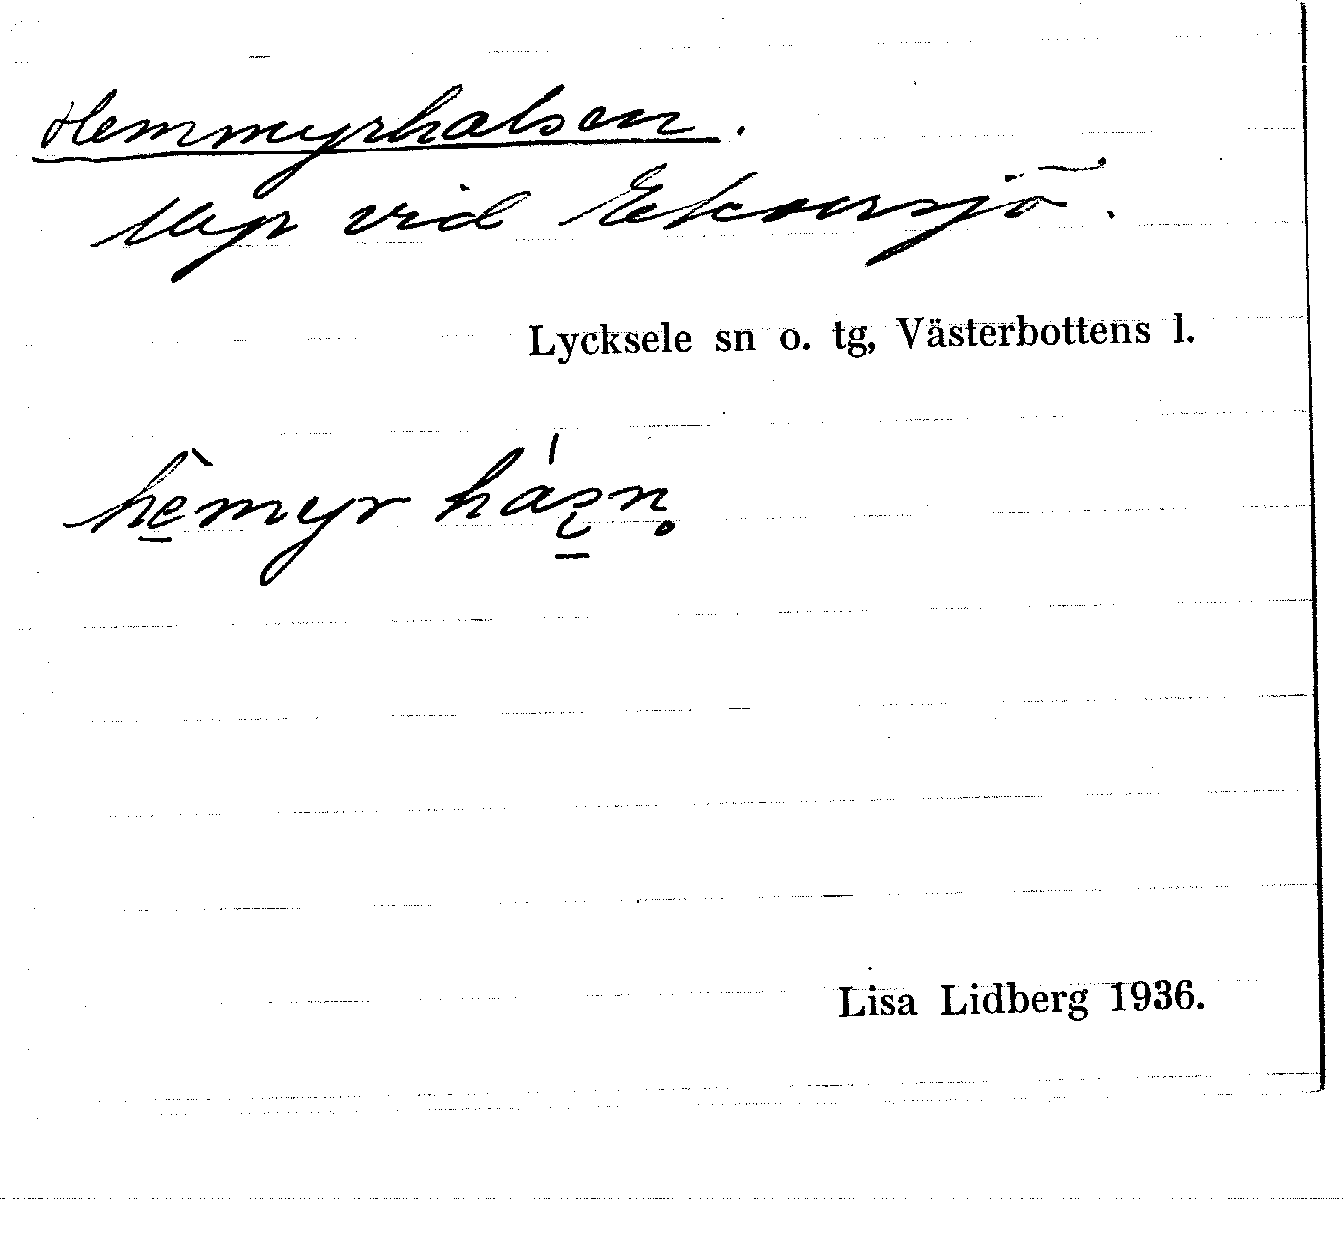 Hemmyrhalsen.
Uep vid Ekorrsjö.
Lycksele sn o. tg, Västerbottens l.
hemyr
Lisa Lidberg 1936.